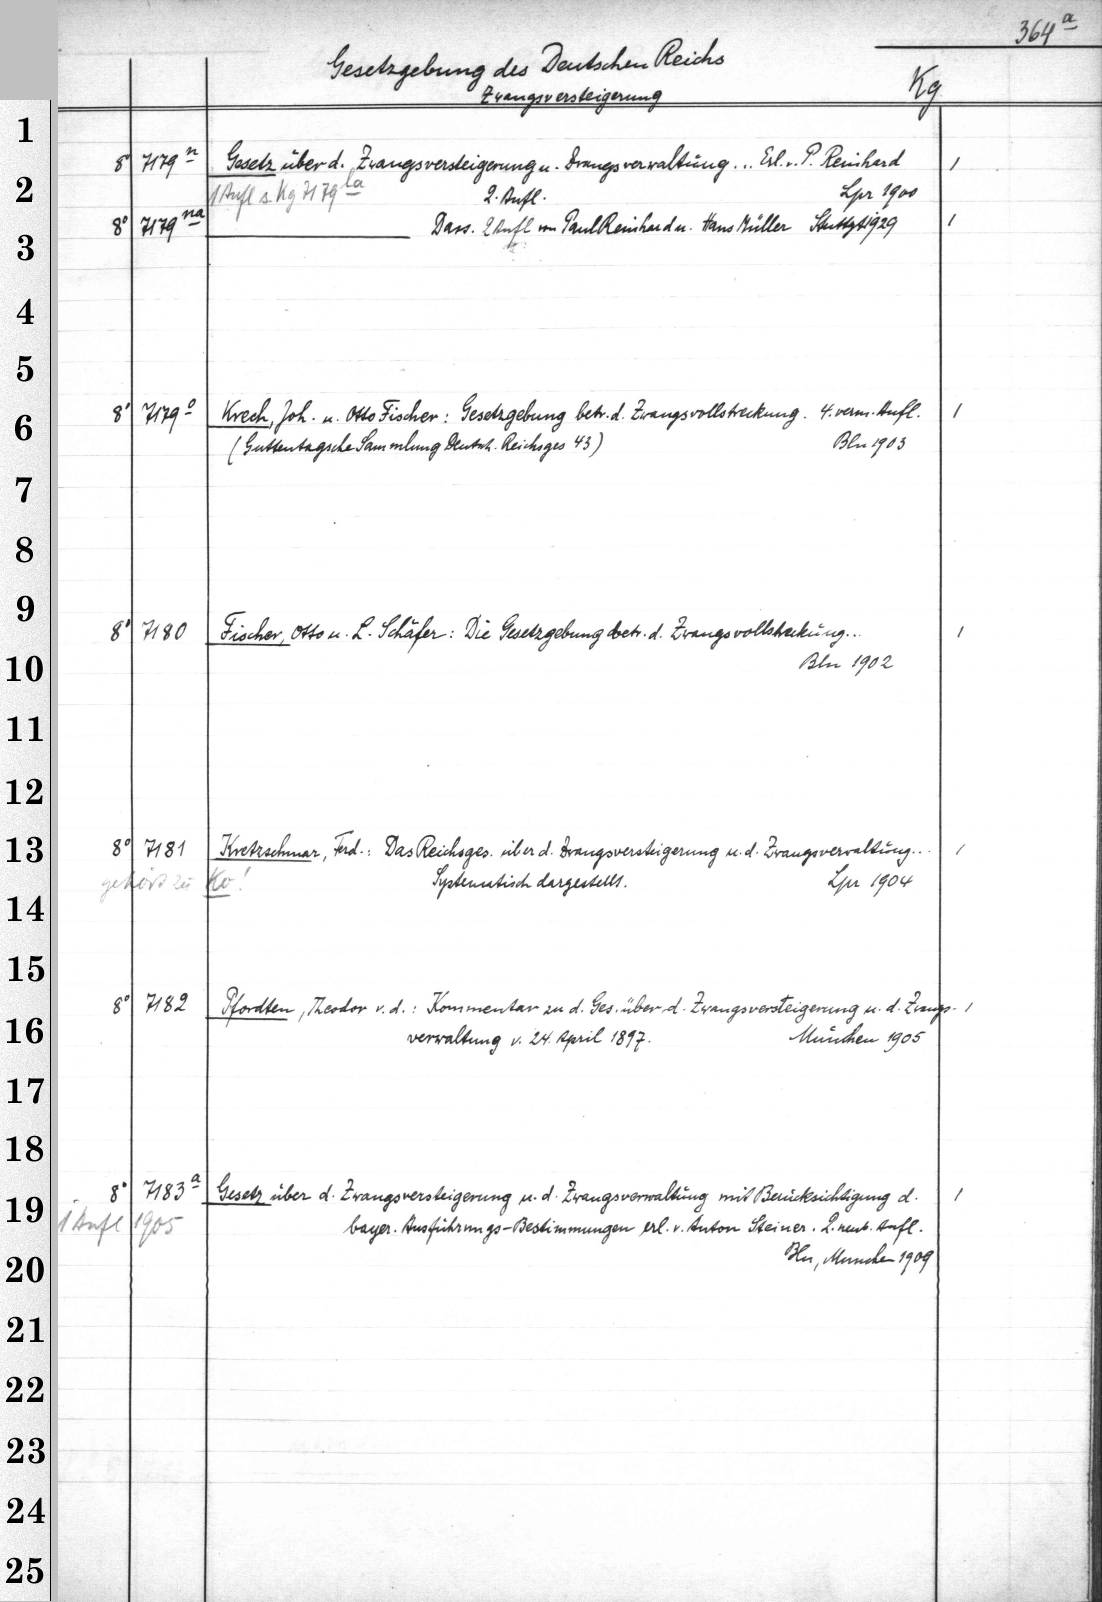 364a
Gesetzgebung des Deutschen Reichs
Kg
Zwangsversteigerung
1
8° 7179n Gesetz über d. Zwangsversteigerung u. Zwangsverwaltung... Erl. v. P. Reinhard 1
2
1 Aufl s. Kg 7179la 2. Aufl. Lpz 1900
8° 7179na Dass. 2 Aufl von Paul Reinhard u. Hans Müller Stuttgt 1929 1
3
4
5
8° 7179o Krech, Joh. u. Otto Fischer: Gesetzgebung betr. d. Zwangsvollstreckung. 4. verm. Aufl. 1
6
(Guttentagsche Sammlung Deutsch. Reichsges 43) Bln 1903
7
8
9
8° 7180 Fischer, Otto u. L. Schäfer: Die Gesetzgebung betr. d. Zwangsvollstreckung... 1
10
Bln 1902
11
12
13
8° 7181 Kretzschmar, Ferd.: Das Reichsges. über d. Zwangsversteigerung u. d. Zwangsverwaltung... 1
gehört zu Ko! Systematisch dargestellt. Lpz 1904
14
15
8° 7182 Pfordten, Theodor v. d.: Kommentar zu d. Ges. über d. Zwangsversteigerung u. d. Zwangs- 1
16
verwaltung v. 24. April 1897. München 1905
17
18
8° 7183a Gesetz über d. Zwangsversteigerung u. d. Zwangsverwaltung mit Berücksichtigung d. 1
19
1 Aufl 1905 bayer. Ausführungs-Bestimmungen erl. v. Anton Steiner. 2. neub. Aufl.
Bln, München 1909
20
21
22
23
24
25